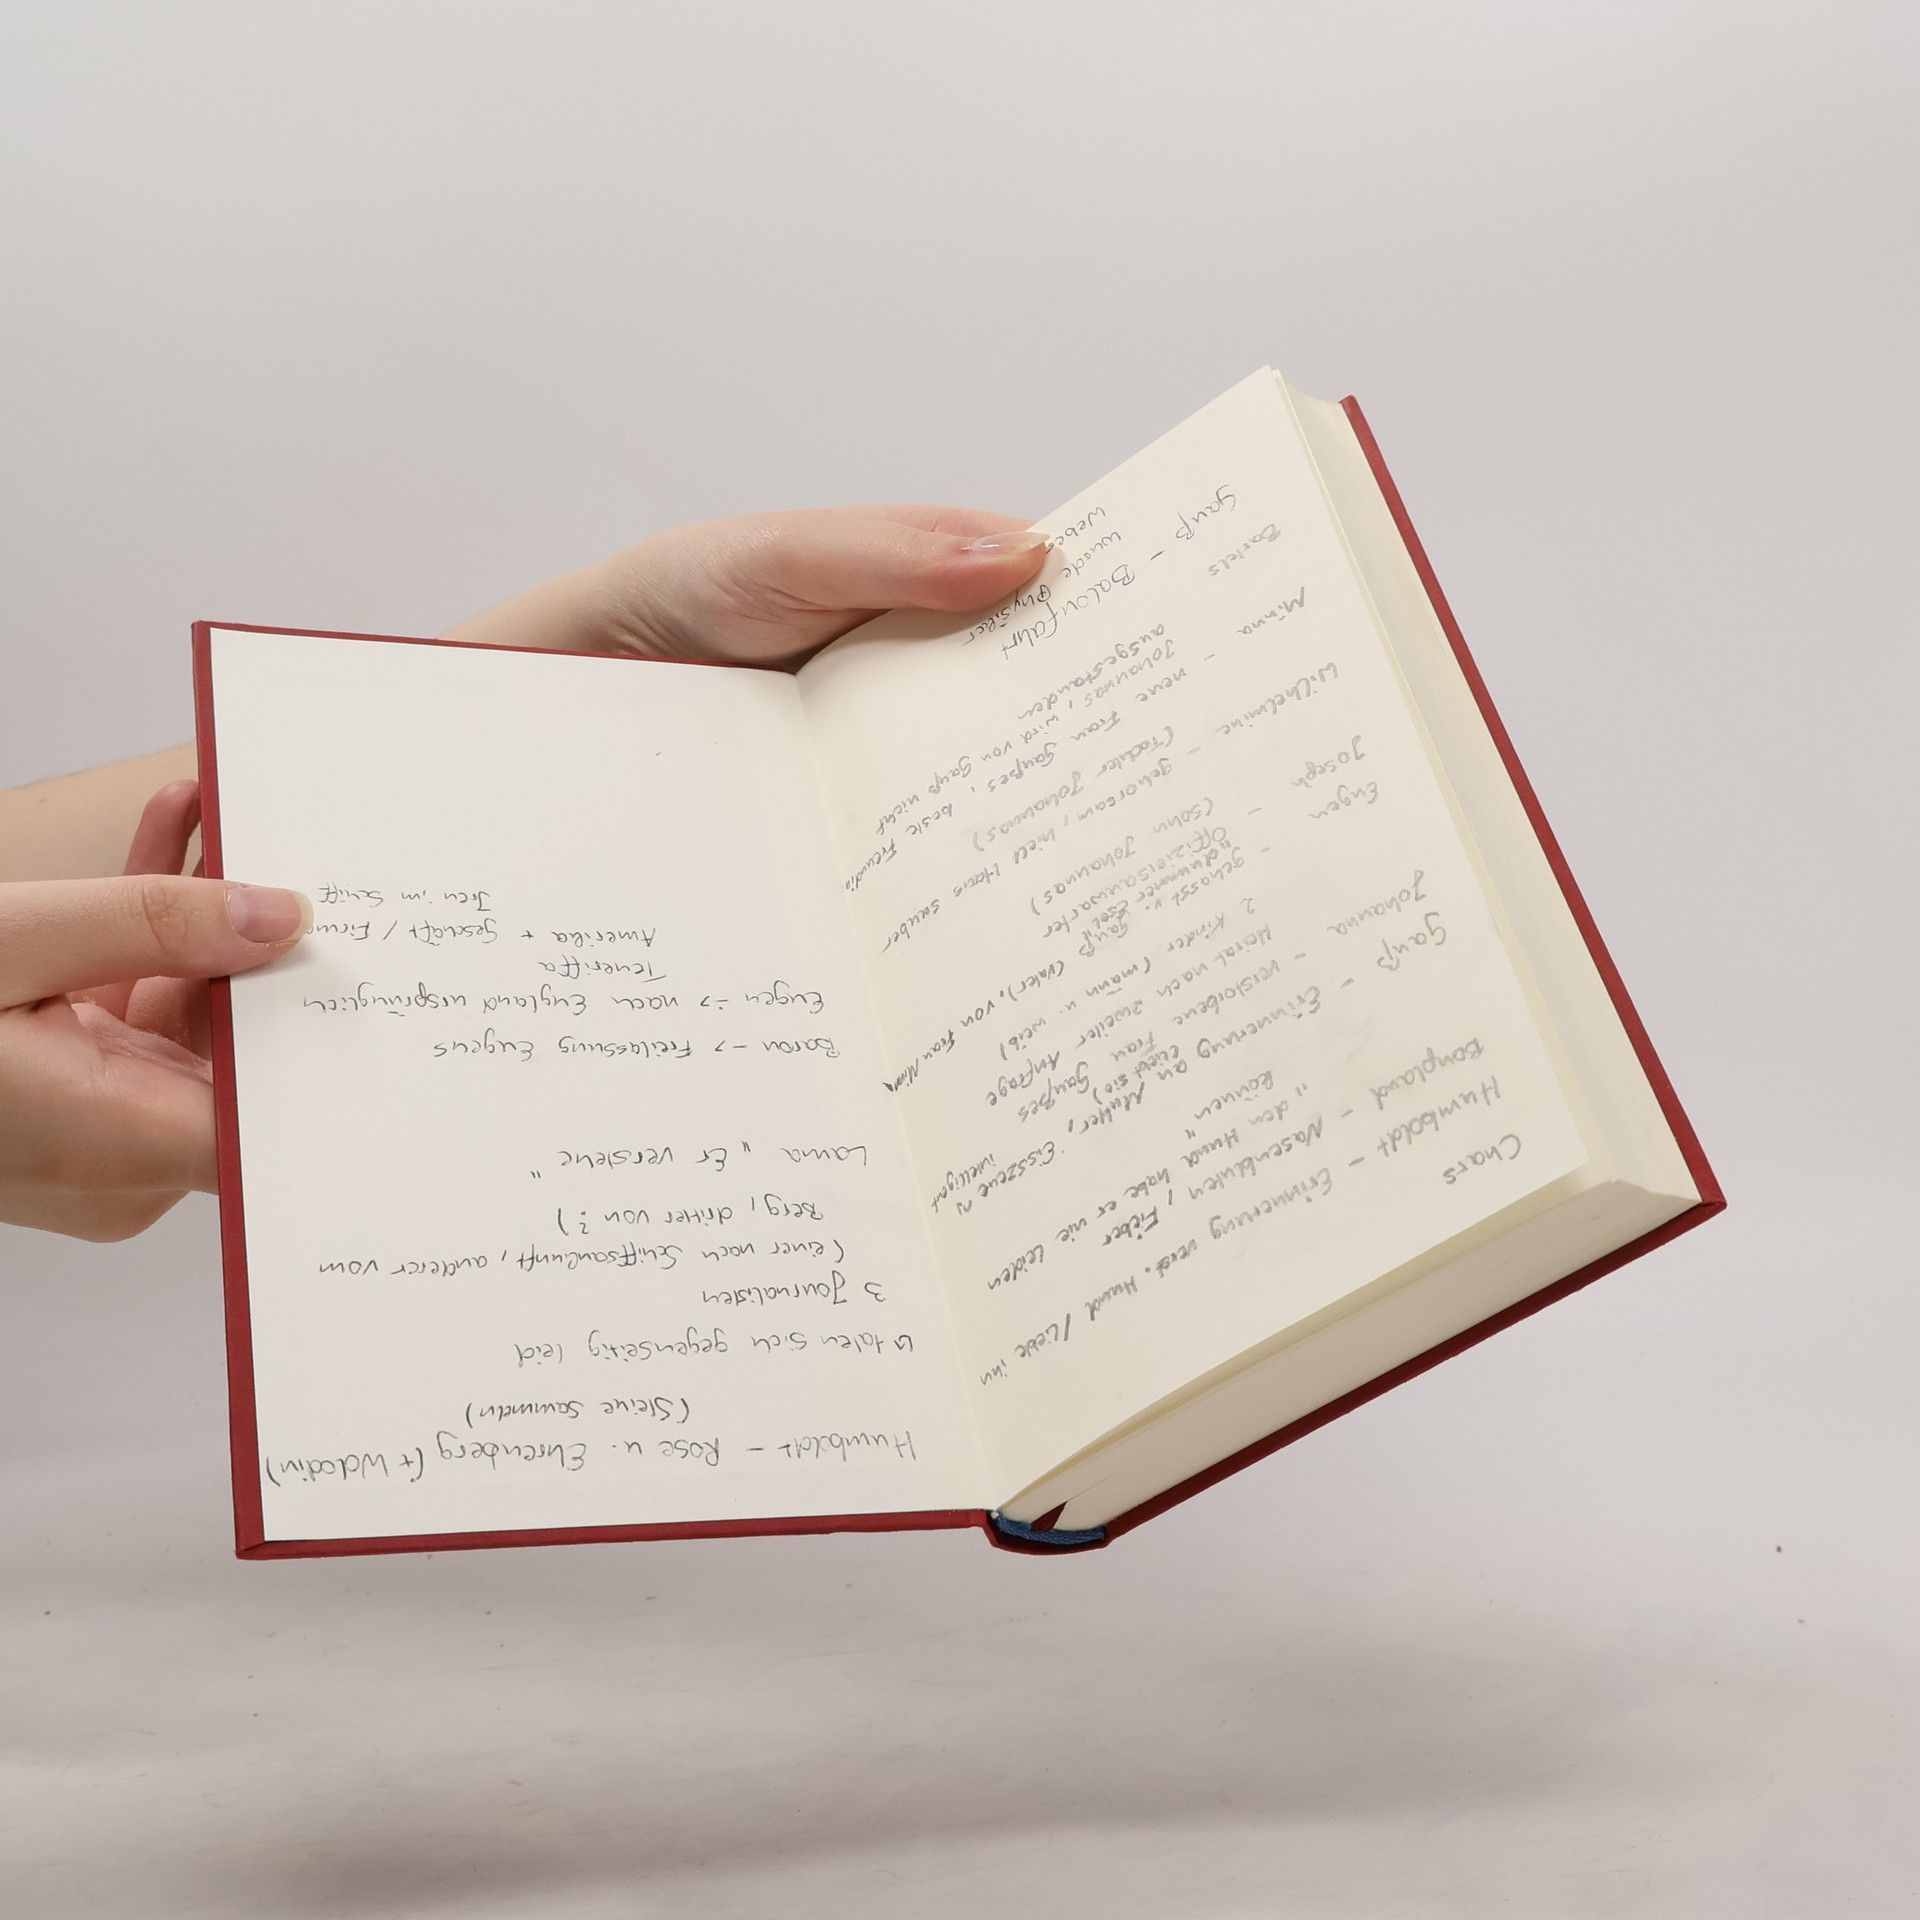 Chars
Humboldt – Erinnerung verst. Hund / Liebte ihn
Bonpland – Nasenbluten, Fieber
"den Hund habe er nie leiden
können"
Gauß – Erinnerung an Mutter, Eisszene
(liebt sie) intelligent
Johanna – verstorbene Frau Gaußes
Heirat nach zweiter Anfrage
2 Kinder (mann u. weib)
Eugen – gehasst v. Gauß (Vater), von Frau Minna
"dummer Esel"
Joseph – Offiziersanwärter
(Sohn Johannas)
Wilhelmine – gehorsam, hielt Haus sauber
(Tochter Johannas)
Minna – neue Frau Gaußes, beste Freundin
Johannas, wird von Gauß nicht
ausgestanden
Bartels
Gauß – Balonfahrt
wurde Physiker
Weber
Humboldt – Rose u. Ehrenberg (+ Wolodin)
(Steine sammeln)
↳ taten sich gegenseitig leid
3 Journalisten
(einer nach Schiffsankunft, anderer vom
Berg, dritter von ?)
Lama "Er verstehe"
Baron –> Freilassung Eugens
Eugen –> nach England ursprünglich
Teneriffa
Amerika + Geschäft / Firma
im Schiff